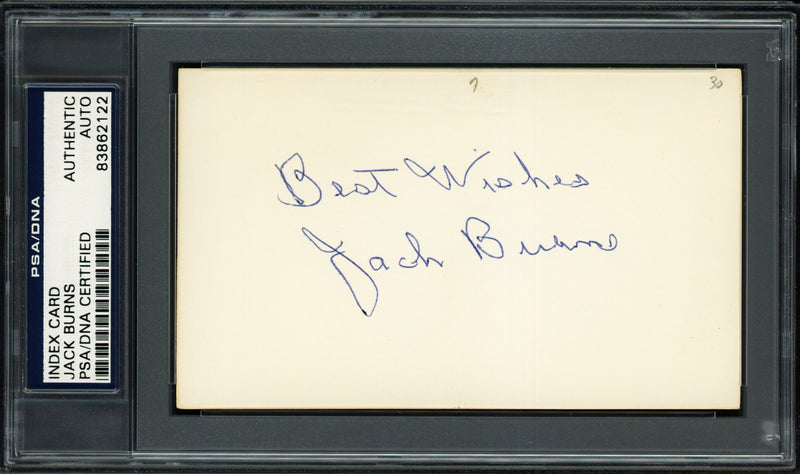 PSA/DNA
INDEX CARD
JACK BURNS
PSA/DNA CERTIFIED
AUTHENTIC
AUTO
83862122
7 30
Best Wishes
Jack Burns